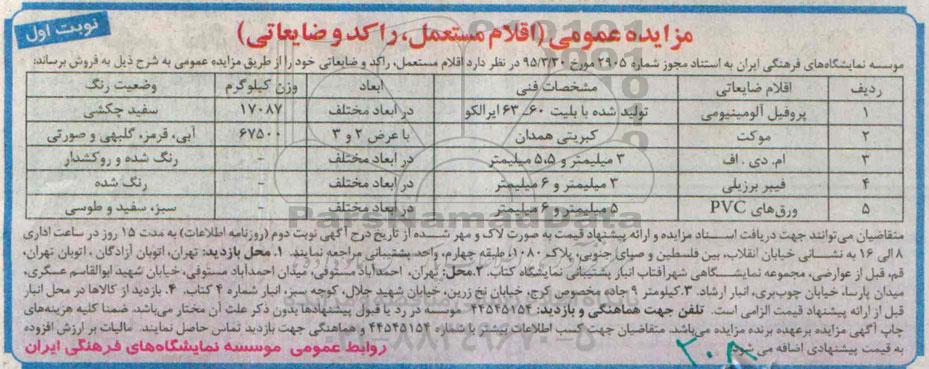 نوبت اول
مزایده عمومی (اقلام مستعمل، راکد و ضایعاتی)
موسسه نمایشگاه‌های فرهنگی ایران به استناد مجوز شماره ۲۹۰۵ مورخ ۹۵/۳/۳۰ در نظر دارد اقلام مستعمل، راکد و ضایعاتی خود را از طریق مزایده عمومی به شرح ذیل به فروش برساند:
ردیف اقلام ضایعاتی مشخصات فنی ابعاد وزن کیلوگرم وضعیت رنگ
۱ پروفیل آلومینیومی تولید شده با بلیت ۶۰ـ۶۳ ایرالکو در ابعاد مختلف ۱۷۰۸۷ سفید چکشی
۲ موکت کبریتی همدان با عرض ۲ و ۳ ۶۷۵۰۰ آبی، قرمز، گلبهی و صورتی
۳ ام. دی. اف ۳ میلیمتر و ۵،۵ میلیمتر در ابعاد مختلف - رنگ شده و روکشدار
۴ فیبر برزیلی ۳ میلیمتر و ۶ میلیمتر در ابعاد مختلف - رنگ شده
۵ ورق‌های PVC ۵ میلیمتر و ۶ میلیمتر در ابعاد مختلف - سبز، سفید و طوسی
متقاضیان می‌توانند جهت دریافت اسناد مزایده و ارائه پیشنهاد قیمت به صورت لاک و مهر شده از تاریخ درج آگهی نوبت دوم (روزنامه اطلاعات) به مدت ۱۵ روز در ساعت اداری
۸ الی ۱۶ به نشانی خیابان انقلاب، بین فلسطین و صبای جنوبی، پلاک ۱۰۸۰، طبقه چهارم، واحد پشتیبانی مراجعه نمایند. ۱. محل بازدید: تهران، اتوبان آزادگان، اتوبان تهران،
قم، قبل از عوارضی، مجموعه نمایشگاهی شهرآفتاب انبار پشتیبانی نمایشگاه کتاب. ۲. محل: تهران، احمدآباد مستوفی، میدان احمدآباد مستوفی، خیابان شهید ابوالقاسم عسگری،
میدان پارسا، خیابان چوب‌بری، انبار ارشاد. ۳. کیلومتر ۹ جاده مخصوص کرج، خیابان نخ زرین، خیابان شهید جلال، کوچه سبز، انبار شماره ۴ کتاب. ۴. بازدید از کالاها در محل انبار
قبل از ارائه پیشنهاد قیمت الزامی است. تلفن جهت هماهنگی و بازدید: ۴۴۵۴۵۱۵۴ موسسه در رد یا قبول پیشنهادها بدون ذکر علت آن مختار می‌باشد. ضمنا کلیه هزینه‌های
چاپ آگهی مزایده برعهده برنده مزایده می‌باشد. متقاضیان جهت کسب اطلاعات بیشتر با شماره ۴۴۵۴۵۱۵۴ و هماهنگی جهت بازدید تماس حاصل نمایند. مالیات بر ارزش افزوده
به قیمت پیشنهادی اضافه می‌شود.
روابط عمومی موسسه نمایشگاه‌های فرهنگی ایران